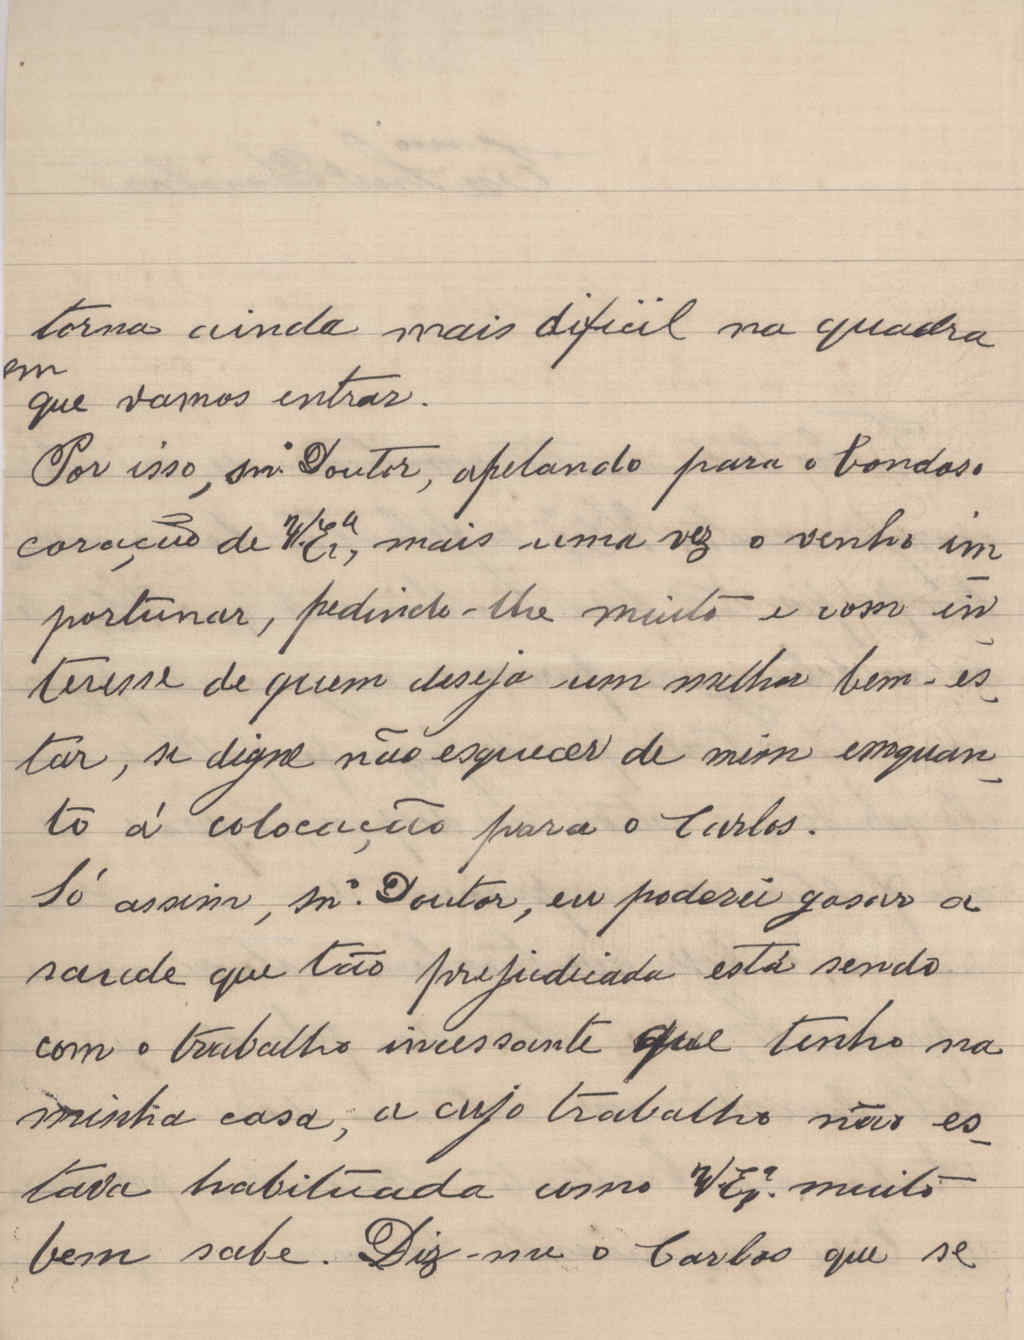 torna ainda mais dificil na quadra
em
que vamos entrar.
Por isso, snr. Doutor, apelando para o bondoso
coração de V. Exª, mais uma vez o venho im
portunar, pedindo-lhe muito e com in
teresse de quem deseja um melhor bem-es-
tar, se digne não esquecer de mim emquan-
to á colocação para o Carlos.
Só assim, snr. Doutor, eu poderei gosar a
saude que tão prejudicada está sendo
com o trabalho incessante que tenho na
minha casa, a cujo trabalho não es-
tava habituada como V. Exª. muito
bem sabe. Diz-me o Carlos que se